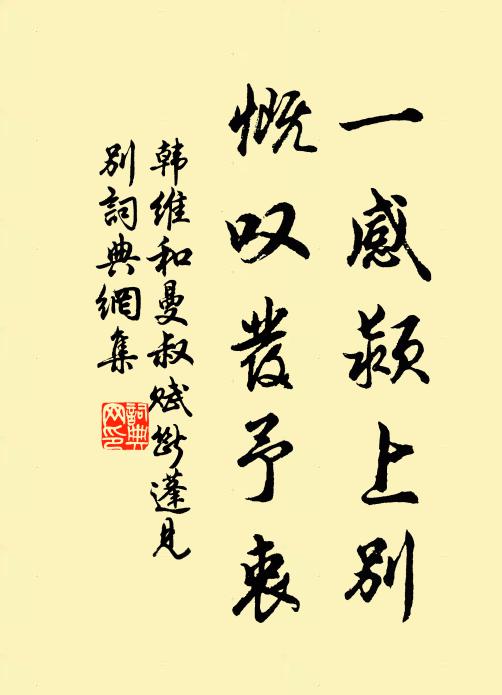 一感颍上别
慨叹發予衷
韩维和曼叔赋断蓬见
别詞典網集
詞典
网印